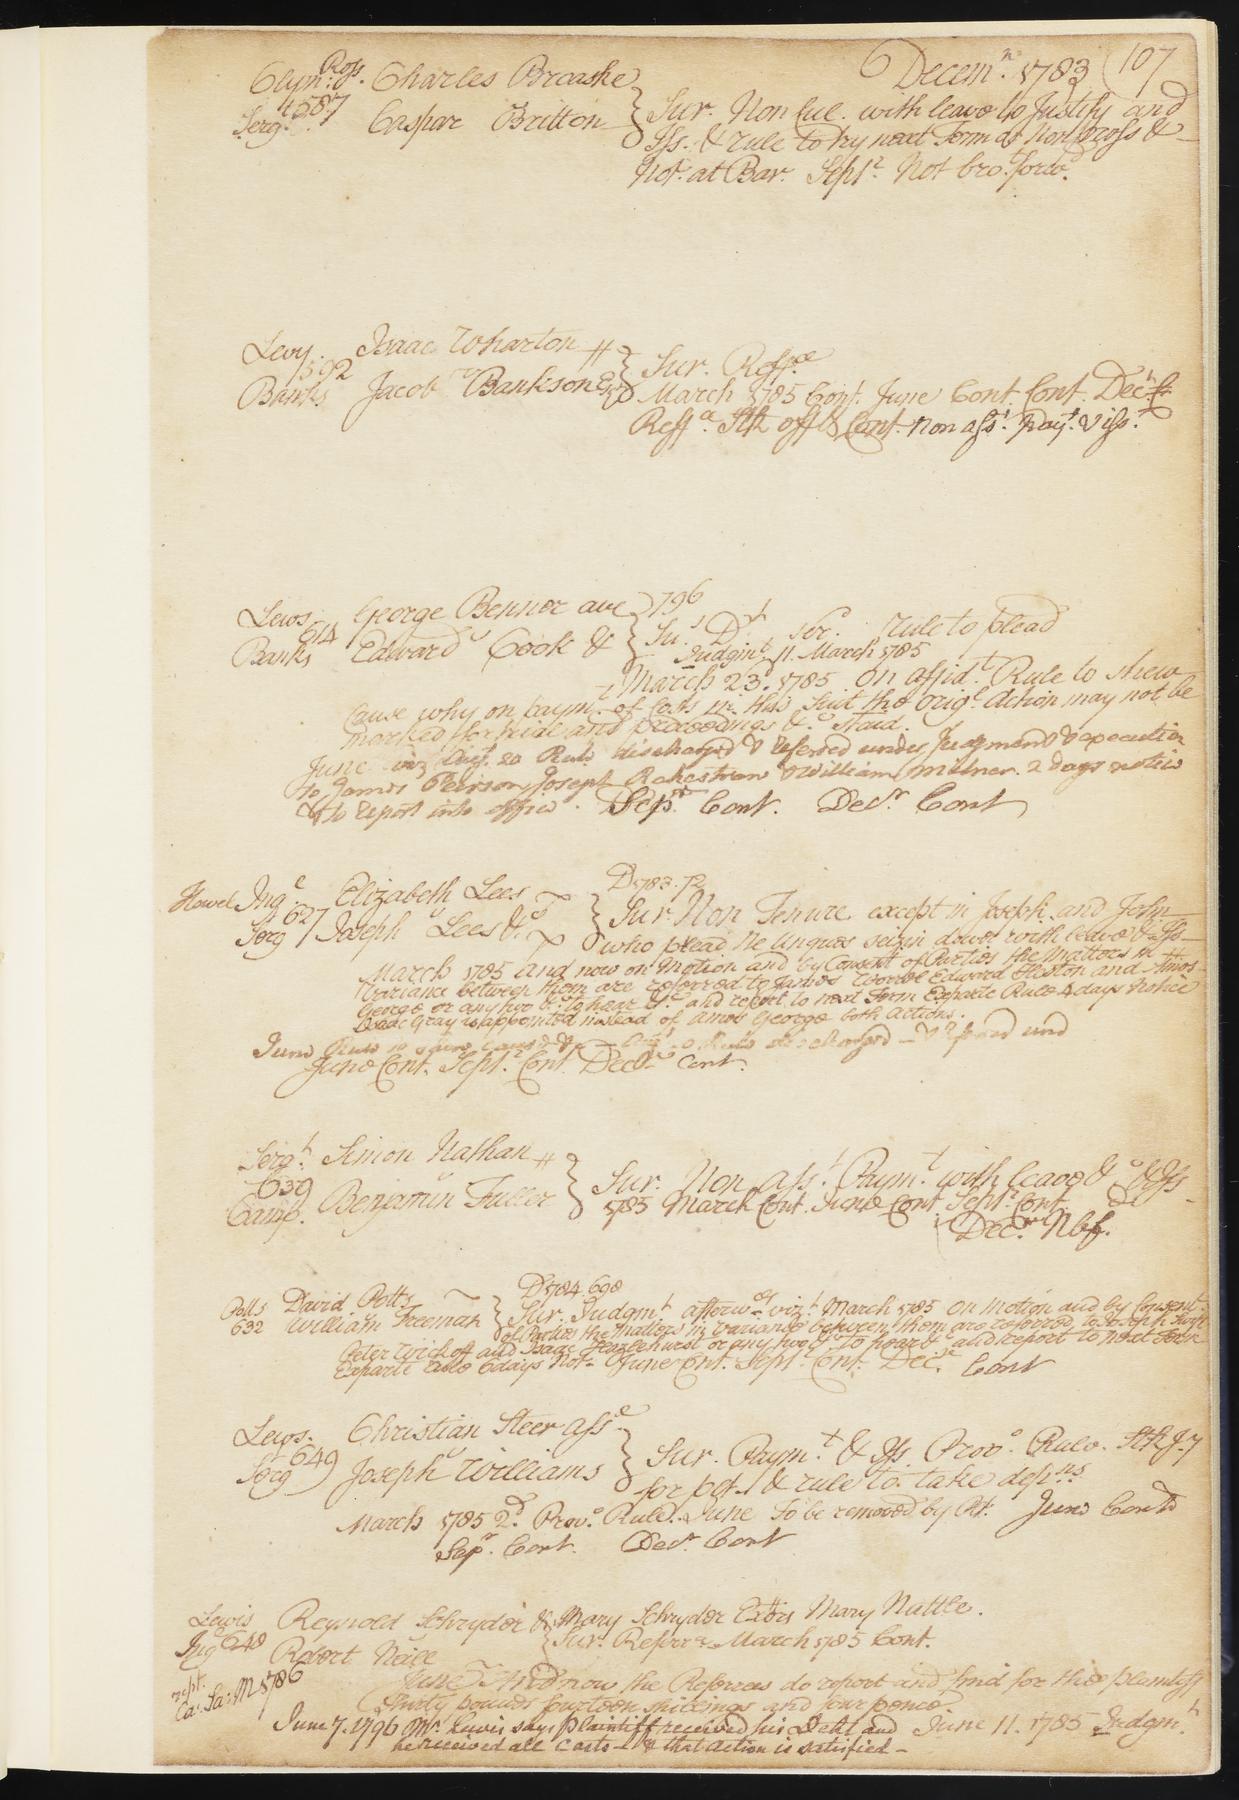 Decem.r 1783 (107
Clym.r Ross. Charles Brooske
Serg.t 587 Caspar Britton
Sur. Non Cul. with leave to Justify and
Iss. & rule to try next Term or Non pross &
Not. at Bar. Sept.r Not bro.t forw.d
Levy. Isaac Wharton
592
Banks Jacob Bankson Esq
Sur. Reff.ce
March 1785 Cont. June Cont. Cont. Dec.r
Reff.ce Stk off & Cont. Non ass.t Pay.t & iss.
Lews. George Bennor 796
614
Banks Edward Cook &
Su.r D.t ser. rule to plead
Judgm.t 11. March 1785
March 23.d 1785 On affid.t Rule to shew
cause why on paym.t of Costs in this Suit the orig.l Action may not be
marked for trial and proceedings &c. staid.
June Rule discharged & referred under Judgment & execution
to James Peirson, Joseph Rakestraw & William Milnor. 2 days notice
& to report into office. Sep.r Cont. Dec.r Cont
Howel Ing.l Elizabeth Lees
627
Serg.t Joseph Lees &c.
D 1783. 72
Sur. Non Tenure except in Joseph and John
who plead Ne Unques seizin dower with leave & Iss
March 1785 and now on Motion and by Consent of Parties the Matters in
Variance between them are referred to James Worrel Edward Heston and Amos
George or any two &c. to hear &c. and report to next Term Exparte Rule 4 days Notice
Isaac Gray is appointed instead of Amos George both Actions.
June Rule to shew Cause Rule discharged & refered und
June Cont. Sept.r Cont. Dec.r Cont.
Serg.t Simon Nathan
639
Camp. Benjamin Fuller
Sur. Non Ass.t Paym.t with leave &c & Iss
1785 March Cont. June Cont. Sept.r Cont.
Dec.r Nbf.
Potts David Potts
632 William Freeman
D 1784. 698
Sur. Judgm.t afterw.ds viz.t March 1785 on Motion and by Consent
of Parties the Matters in Variance between them are referred to Joseph
Peter Wickoff and Isaac Hazlehurst or any two &c to hear &c and report to next Term
Exparte rule 6 days Not.ce June Cont. Sept.r Cont. Dec.r Cont
Lews. Christian Steer Ass.e
649
Serg.t Joseph Williams
Sur. Paym.t & Iss Prov.o Rule. Stk J.y
for plt. & rule to take dep.ns
March 1785 2.d Prov.o Rule. June To be removed by Plt. June Cont.d
Sep.r Cont. Dec.r Cont
Lewis Reynold Schryder & Mary Schryder Exors Mary Nattle.
Ing.l 648 Robert Neill
Sur. Referr.ce March 1785 Cont.
Ca: Sa: M 1786
June And now the Referees do report and find for the plaintiff
thirty pounds fourteen shillings and four pence.
June 11. 1785 Judgm.t
June 7. 1796 M.r Lewis says Plaintiff received his Debt and
he received all Costs & that Action is satisfied